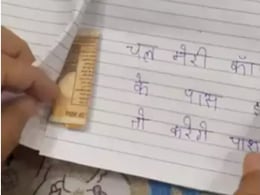 चल मेरी कॉ
के पास
तो करेगे पाश